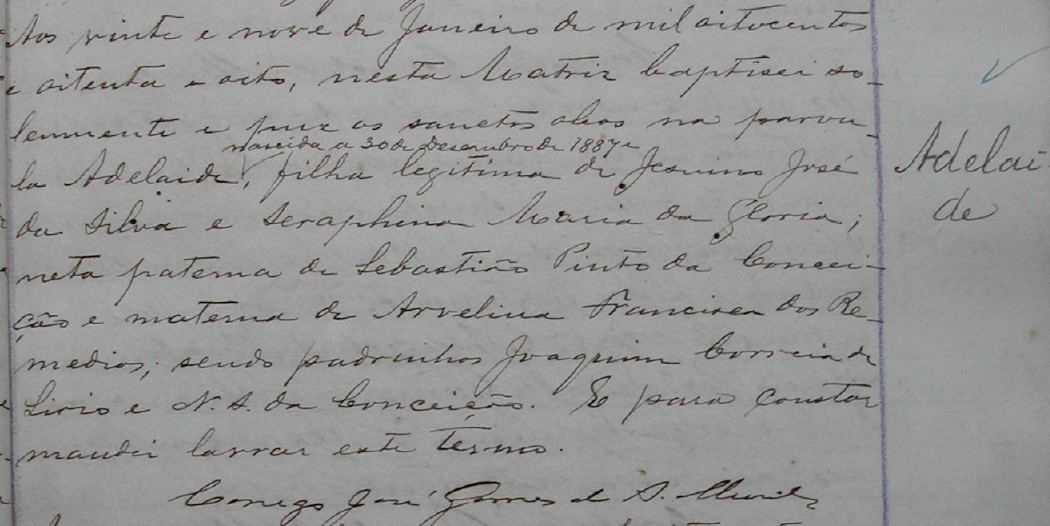 Aos vinte e nove de Janeiro de mil oitocentos
e oitenta e oito, nesta Matriz baptisei so-
lemnente e puz os sanctos oleos na parvu-
nascida a 30 de Desembro de 1887 e
la Adelaide, filha legitima de Jesuino José
da Silva e Seraphina Maria da Gloria;
neta paterna de Sebastião Pinto da Concei-
ção e materna de Arvelina Francisca dos Re-
medios; sendo padrinhos Joaquim Correia de
Lirio e N. S. da Conceição. E para constar
mandei lavrar este termo.
Conego José Gomes de A.
Adelai
de